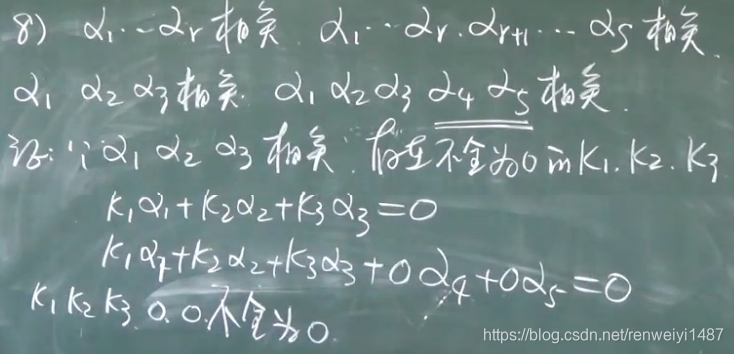 8) α₁…αr相关. α₁…αr.αr+1…αs相关.
α₁ α₂ α₃相关. α₁ α₂ α₃ α₄ α₅相关.
证:∵α₁ α₂ α₃相关. 存在不全为0的K₁.K₂.K₃
K₁α₁+K₂α₂+K₃α₃=0
K₁α₁+K₂α₂+K₃α₃+0α₄+0α₅=0
K₁K₂K₃.0.0.不全为0.
https://blog.csdn.net/renweiyi1487